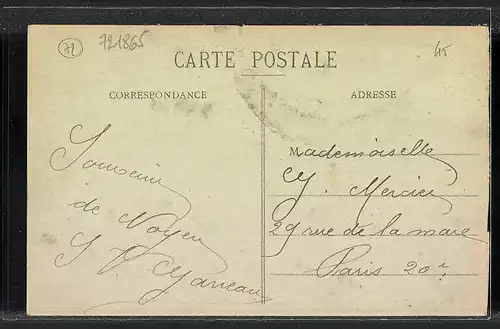 72
721865
45
CARTE POSTALE
CORRESPONDANCE
ADRESSE
Souvenir
de Noyen
Mademoiselle
Y. Mercier
29 rue de la mare
Paris 20e